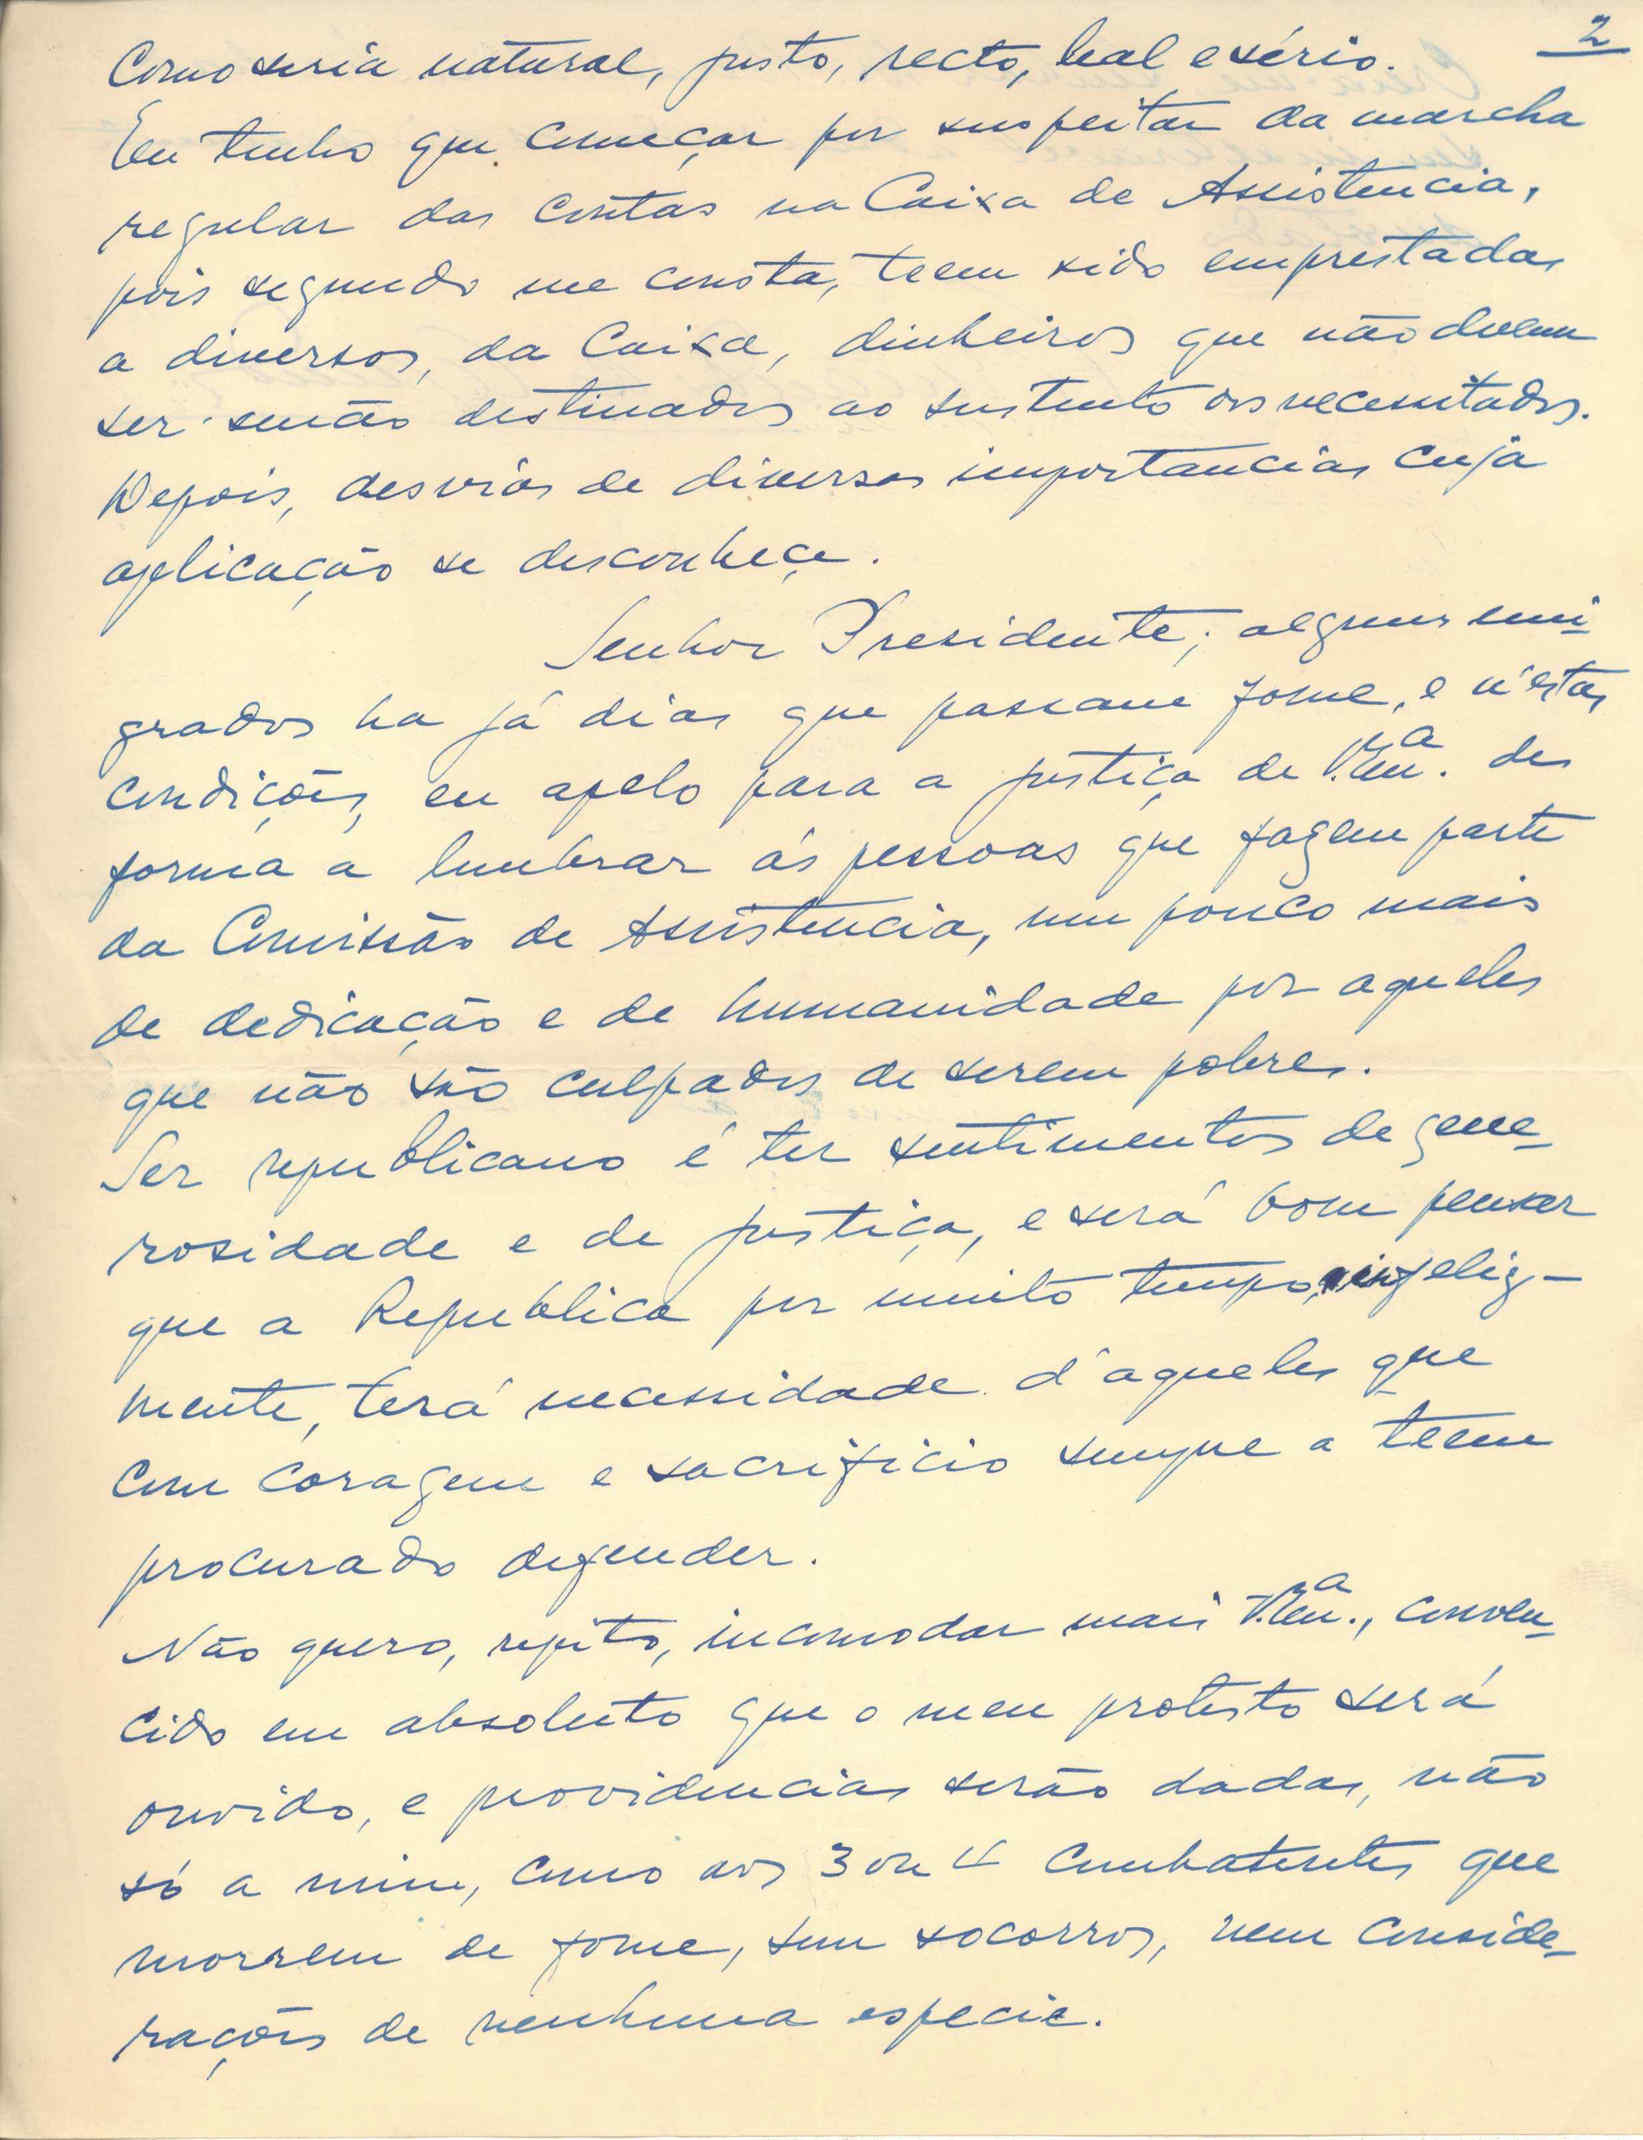 2
Como seria natural, justo, recto, leal e sério.
Eu tenho que começar por suspeitar da marcha
regular das contas na Caixa de Assistencia,
pois segundo me consta, teem sido emprestadas
a diversos, da Caixa, dinheiros que não devem
ser senão destinados ao sustento dos necessitados.
Depois, desvios de diversas importancias cuja
aplicação se desconheçe.
Senhor Presidente; alguns emi-
grados ha já dias que passam fome, e n'estas
condições, eu apelo para a justiça de V. Exª. de
forma a lembrar ás pessoas que fazem parte
da Comissão de Assistencia, um pouco mais
de dedicação e de humanidade por aqueles
que não são culpados de serem pobres.
Ser republicano é ter sentimentos de gene-
rosidade e de justiça, e será bom pensar
que a Republica por muito tempo, infeliz-
mente, terá necessidade d'aqueles que
com coragem e sacrificio sempre a teem
procurado defender.
Não quero, repito, incomodar mais V. Exª., conven-
cido em absoluto que o meu protesto será
ouvido, e providencias serão dadas, não
só a mim, como aos 3 ou 4 combatentes que
morrem de fome, sem socorros, nem conside-
rações de nenhuma especie.